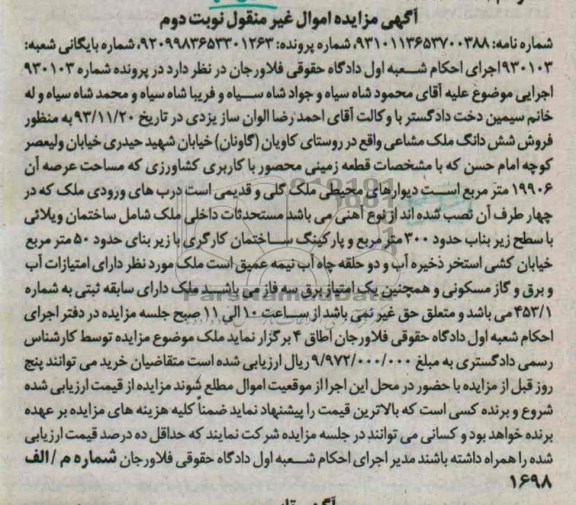 آگهی مزایده اموال غیر منقول نوبت دوم
شماره نامه: ۹۳۱۰۱۱۳۶۵۳۷۰۰۳۸۸، شماره پرونده: ۹۲۰۹۹۸۳۶۵۳۳۰۱۲۶۳، شماره بایگانی شعبه:
۹۳۰۱۰۳ اجرای احکام شعبه اول دادگاه حقوقی فلاورجان در نظر دارد در پرونده شماره ۹۳۰۱۰۳
اجرایی موضوع علیه آقای محمود شاه سیاه و جواد شاه سیاه و فریبا شاه سیاه و محمد شاه سیاه و له
خانم سیمین دخت دادگستر با وکالت آقای احمد رضا الوان ساز یزدی در تاریخ ۹۳/۱۱/۲۰ به منظور
فروش شش دانگ ملک مشاعی واقع در روستای کاویان (گاونان) خیابان شهید حیدری خیابان ولیعصر
کوچه امام حسن که با مشخصات قطعه زمینی محصور با کاربری کشاورزی که مساحت عرصه آن
۱۹۹۰۶ متر مربع است دیوارهای محیطی ملک گلی و قدیمی است درب های ورودی ملک که در
چهار طرف آن نصب شده اند از نوع آهنی می باشد مستحدثات داخلی ملک شامل ساختمان ویلائی
با سطح زیر بناب حدود ۳۰۰ متر مربع و پارکینگ ساختمان کارگری با زیر بنای حدود ۵۰ متر مربع
خیابان کشی استخر ذخیره آب و دو حلقه چاه آب نیمه عمیق است ملک مورد نظر دارای امتیازات آب
و برق و گاز مسکونی و همچنین یک امتیاز برق سه فاز می باشید ملک دارای سابقه ثبتی به شماره
۴۵۳/۱ می باشد و متعلق حق غیر نمی باشد از ساعت ۱۰ الی ۱۱ صبح جلسه مزایده در دفتر اجرای
احکام شعبه اول دادگاه حقوقی فلاورجان اطاق ۴ برگزار نماید ملک موضوع مزایده توسط کارشناس
رسمی دادگستری به مبلغ ۹/۹۷۲/۰۰۰/۰۰۰ ریال ارزیابی شده است متقاضیان خرید می توانند پنج
روز قبل از مزایده با حضور در محل این اجرا از موقعیت اموال مطلع شوند مزایده از قیمت ارزیابی شده
شروع و برنده کسی است که بالاترین قیمت را پیشنهاد نماید ضمناً کلیه هزینه های مزایده بر عهده
برنده خواهد بود و کسانی می توانند در جلسه مزایده شرکت نمایند که حداقل ده درصد قیمت ارزیابی
شده را همراه داشته باشند مدیر اجرای احکام شعبه اول دادگاه حقوقی فلاورجان شماره م / الف
۱۶۹۸